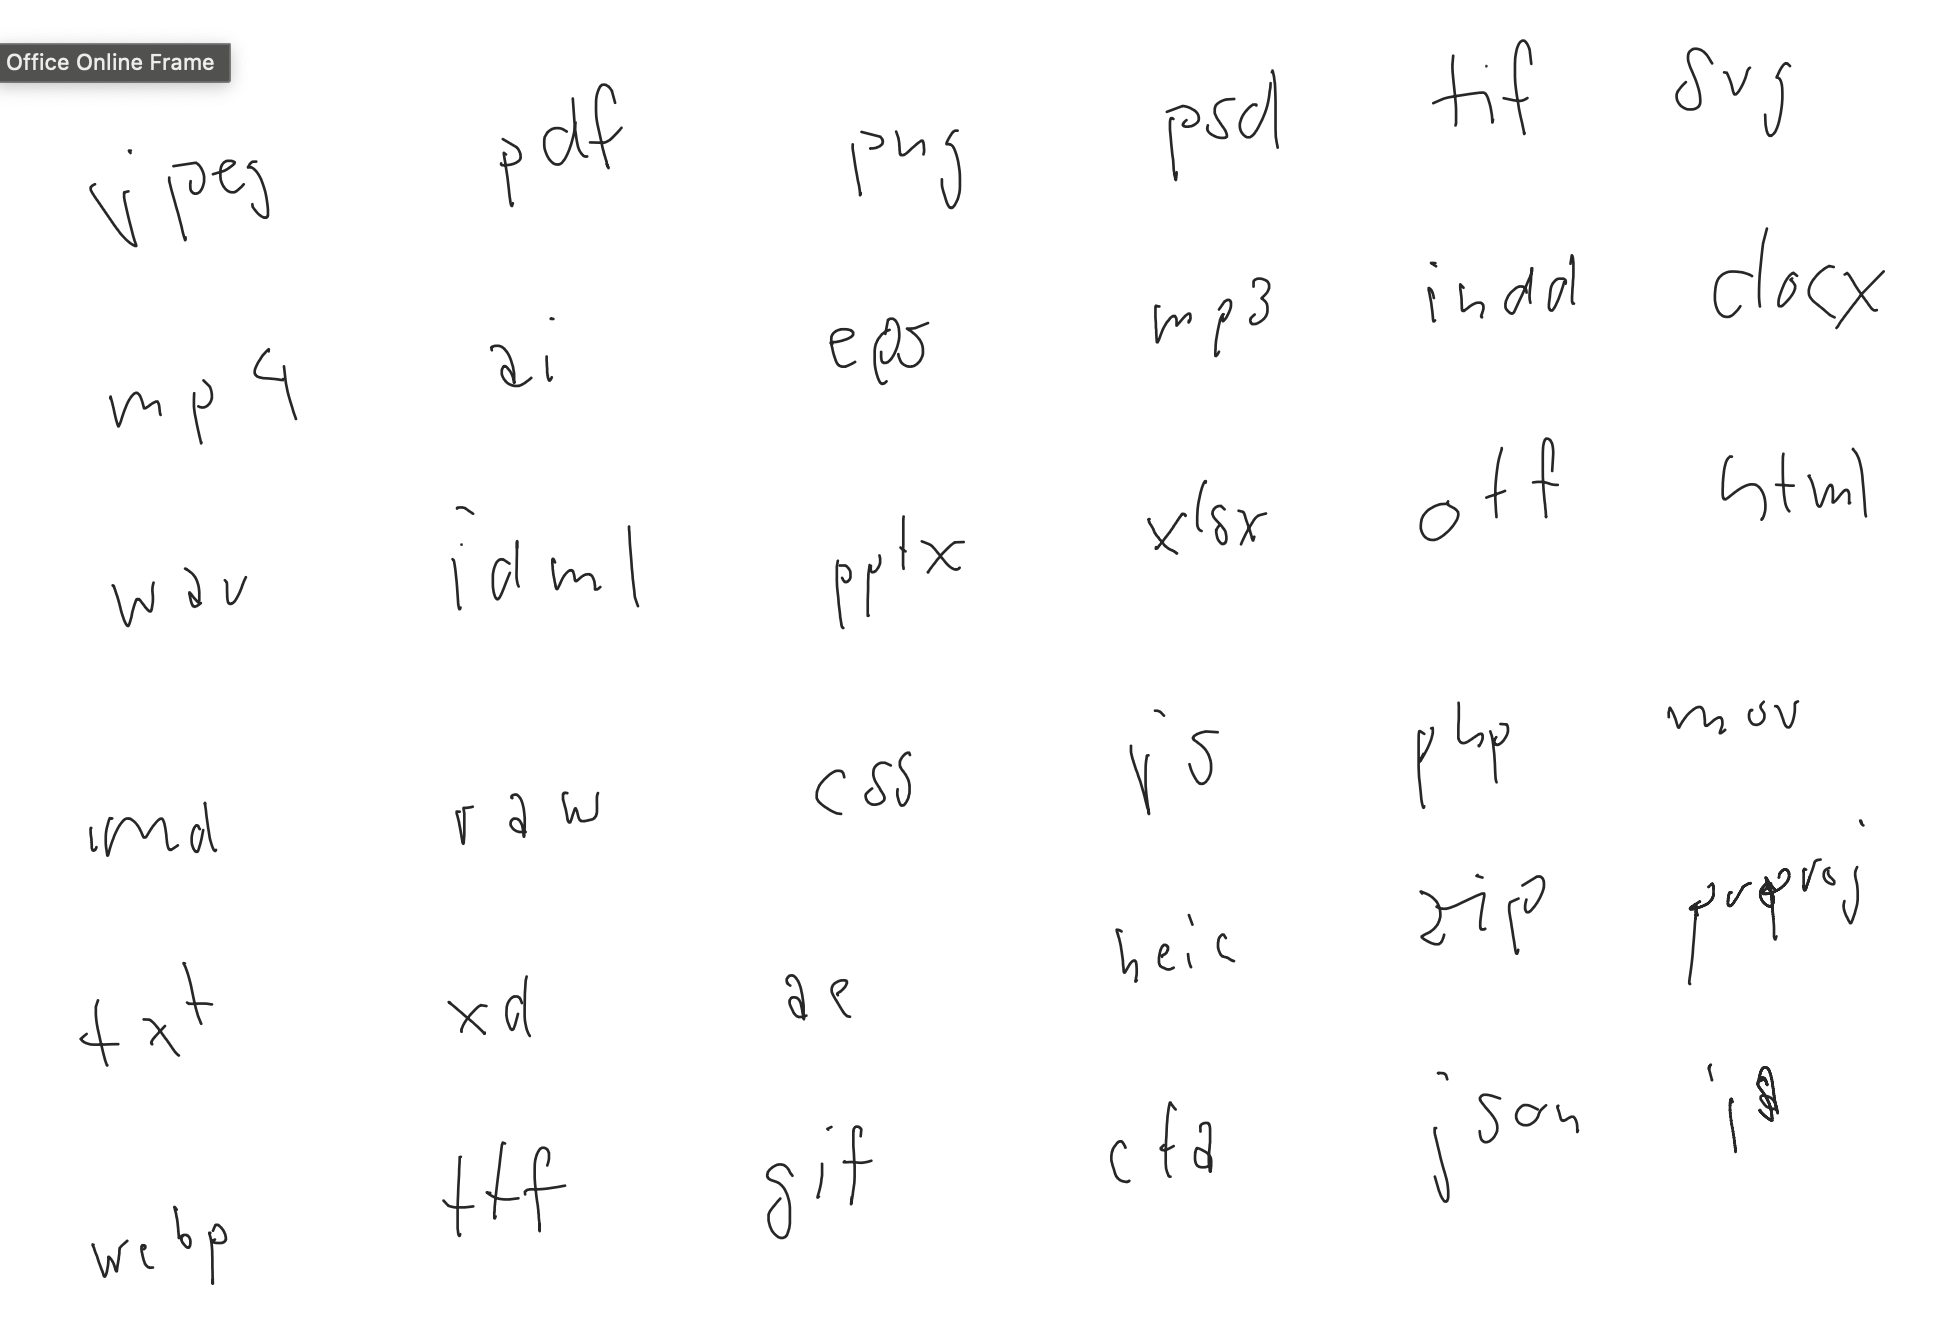 Office Online Frame
jpeg pdf png psd tif svg
mp4 ai eps mp3 indd docx
wav idml pptx xlsx otf html
md raw css js php mov
txt xd ae heic zip prproj
webp ttf gif cfa json